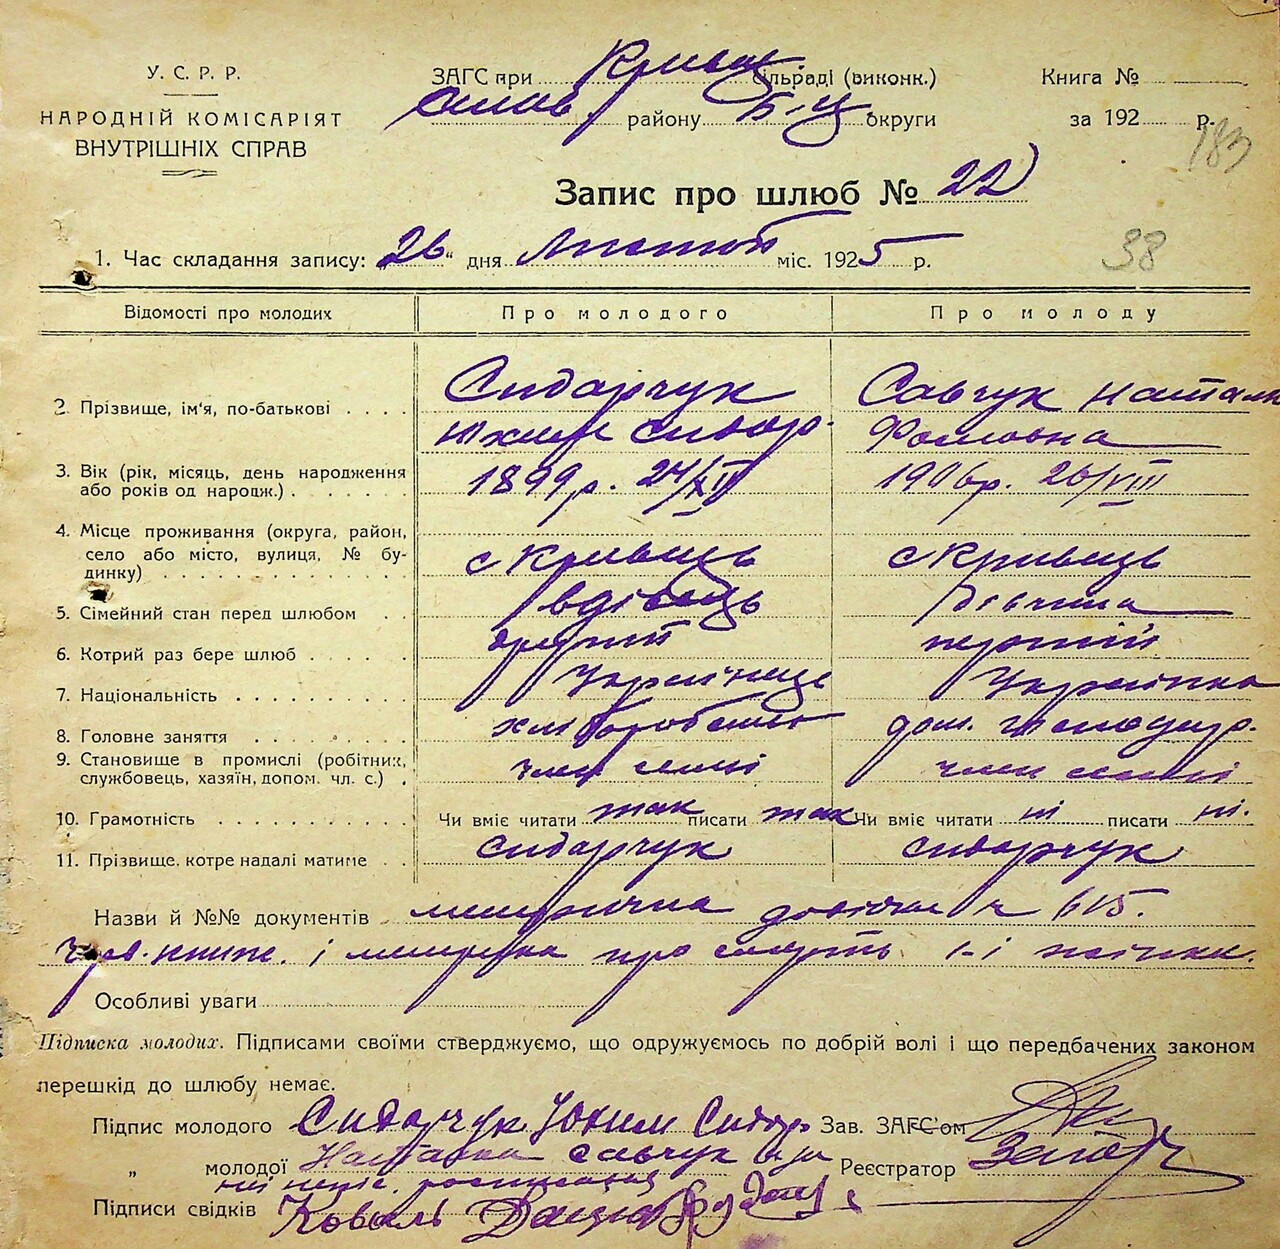 У. С. Р. Р.
НАРОДНІЙ КОМІСАРІЯТ
ВНУТРІШНІХ СПРАВ
ЗАГС при Кривец сільраді (виконк.)
району Б-Ц округи
Книга №
за 192 р.
183
Запис про шлюб № 22
1. Час складання запису: „26" дня Лютий міс. 1925 р.
38
Відомості про молодих Про молодого Про молоду
2. Прізвище, ім'я, по-батькові . . . . Сидарчук Савчук Наталя
Юхим Сидор. Фомовна
3. Вік (рік, місяць, день народження 1899 р. 1906 р. 26/VIII
або років од народж.) . . . . . .
4. Місце проживання (округа, район,
село або місто, вулиця, № бу- с Кривець с Кривець
динку) . . . . . . . . . . . .
5. Сімейний стан перед шлюбом . . вдівець дівчина
6. Котрий раз бере шлюб . . . . . другий перший
7. Національність . . . . . . . . . Українець Українка
8. Головне заняття . . . . . . . . хлібороб дом. господар.
9. Становище в промислі (робітник,
службовець, хазяїн, допом. чл. с.) . член семьї член семьї
10. Грамотність . . . . . . . . . . Чи вміє читати так писати так Чи вміє читати ні писати ні.
11. Прізвище, котре надалі матиме . . Сидарчук Сидарчук
Назви й №№ документів метрична довідка ч 615.
і метрика про смерть 1-ї
Особливі уваги
Підписка молодих. Підписами своїми стверджуємо, що одружуємось по добрій волі і що передбачених законом
перешкід до шлюбу немає.
Підпис молодого Сидарчук Юхим Сидор. Зав. ЗАГС'ом
„ молодої Наталка Савчук Реєстратор
Підписи свідків Коваль